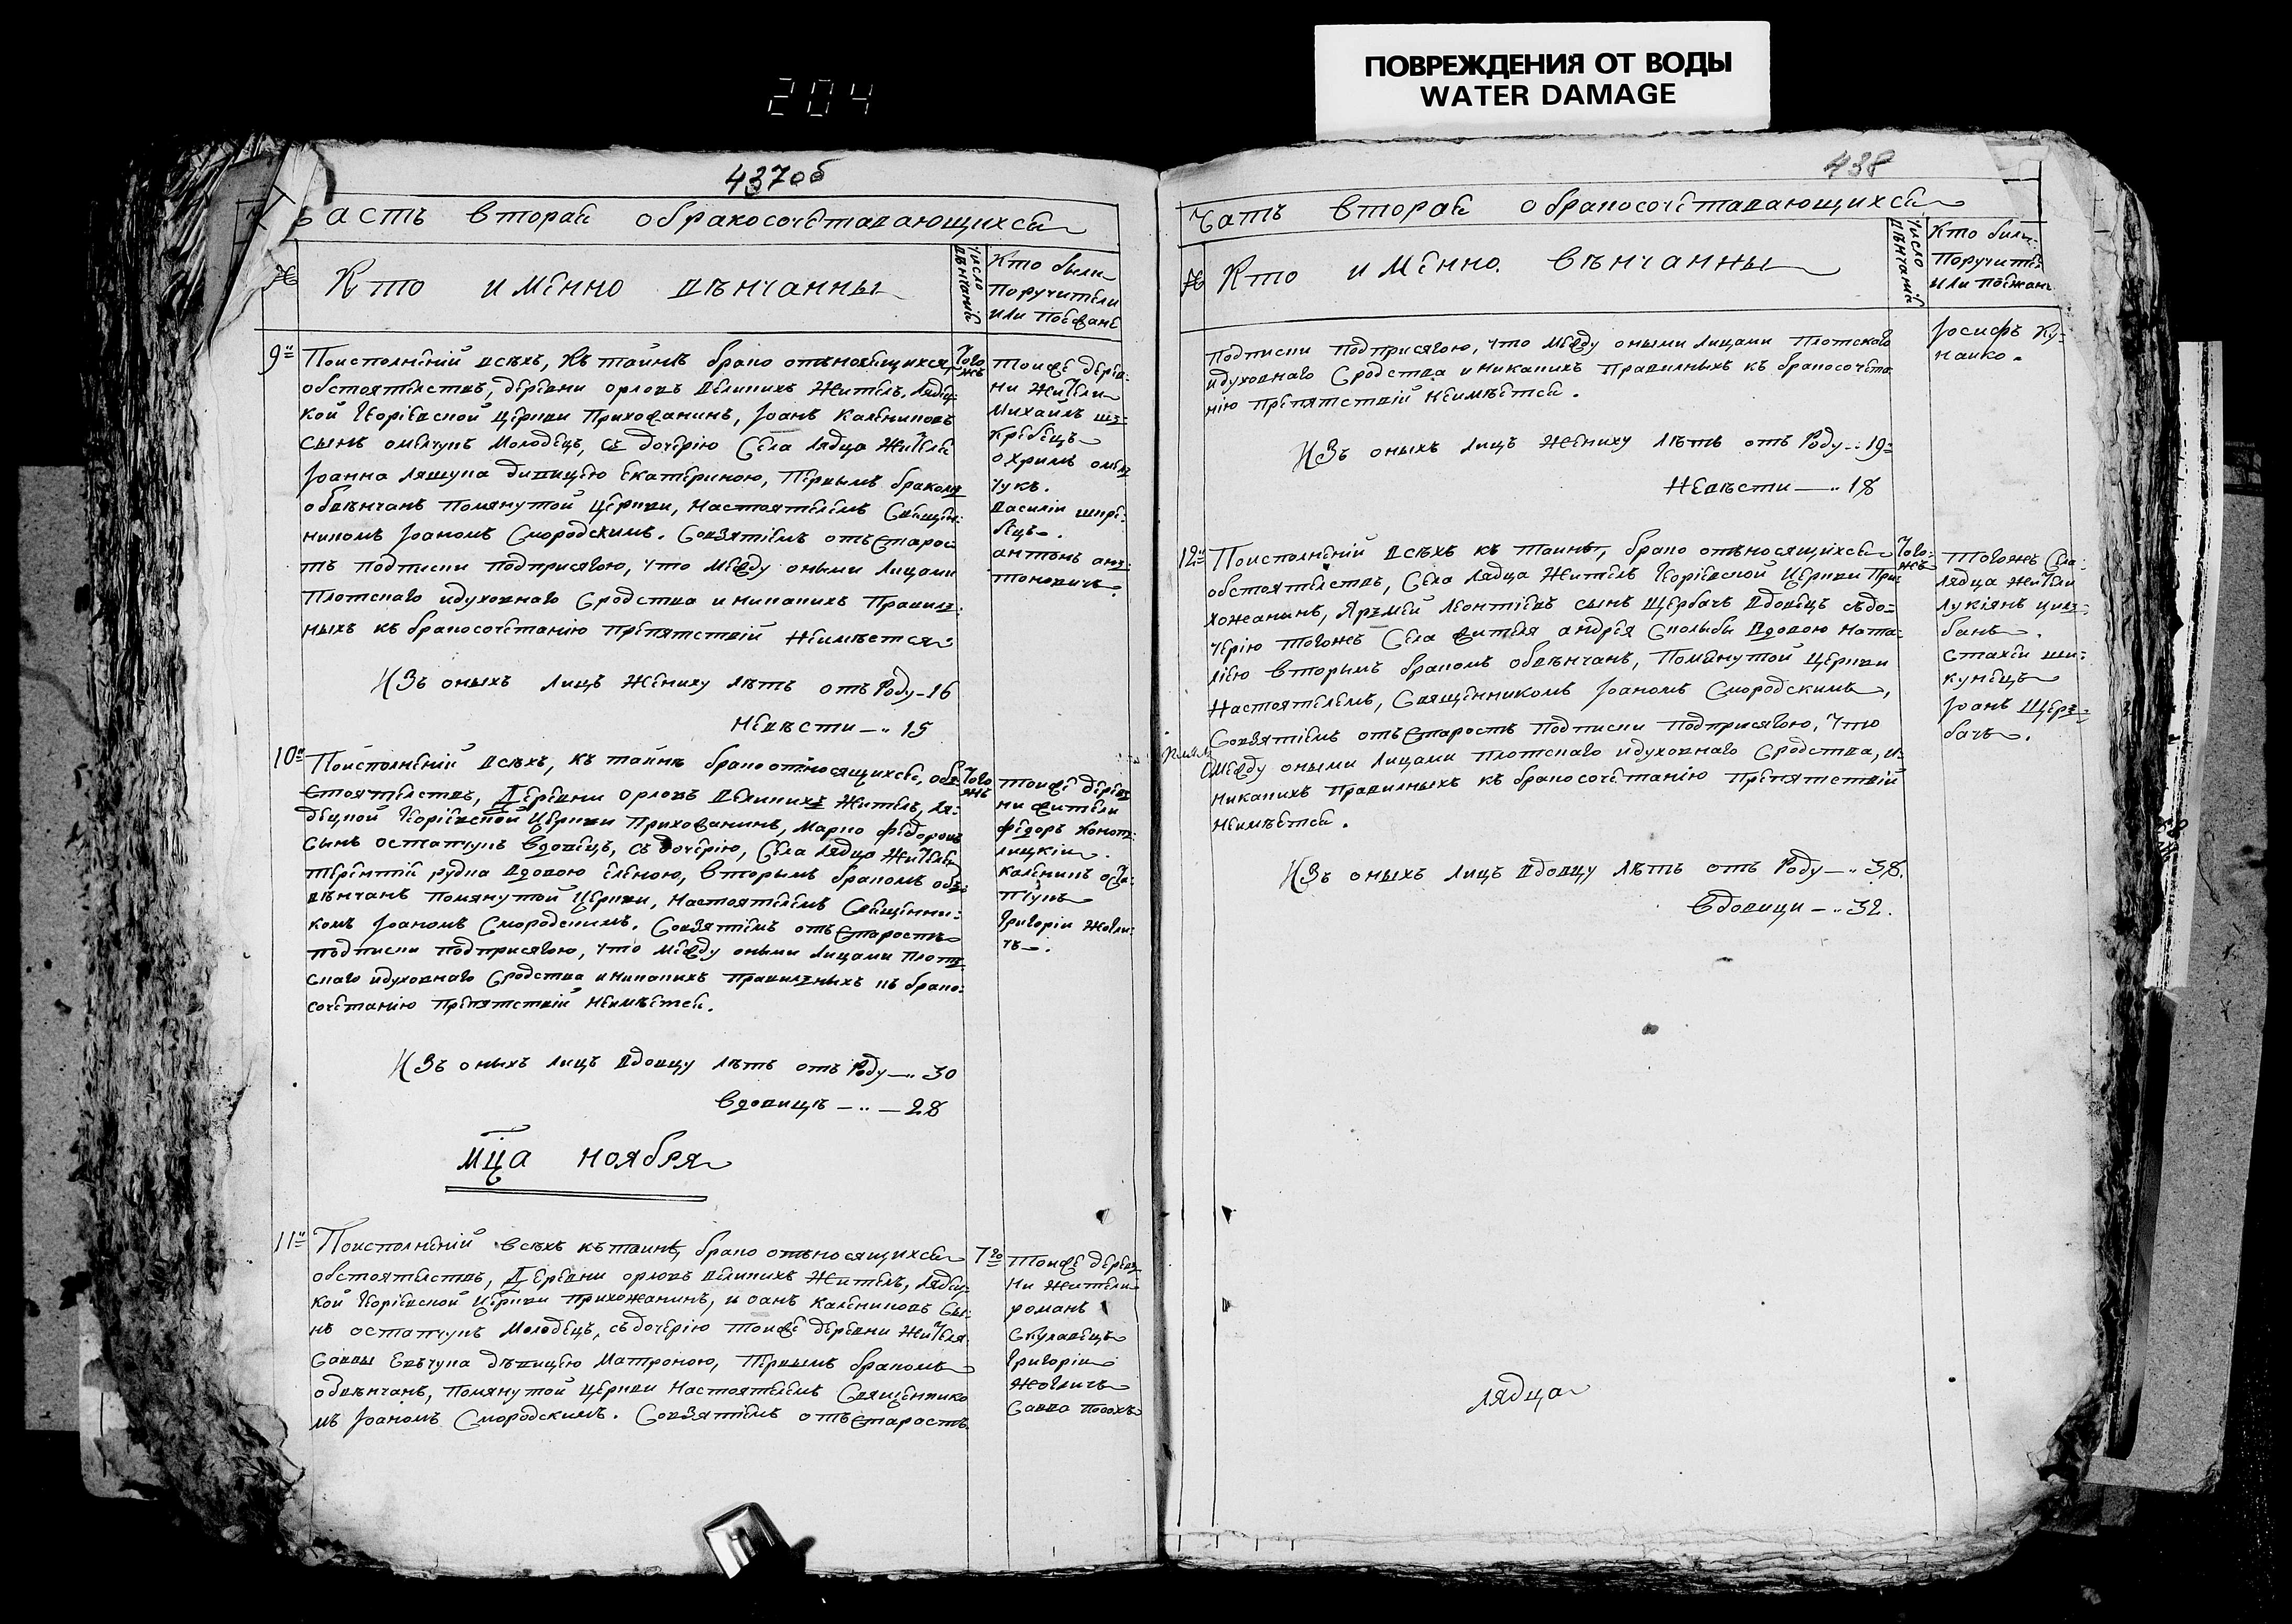 ПОВРЕЖДЕНИЯ ОТ ВОДЫ
WATER DAMAGE
204
437об
асть вторая обракосочетавающихся
№
Кто именно вѣнчанны
Число вѣнчаній
Кто были
поручители
или поезжане
9
Поисполненій всѣхъ, къ тайнѣ брако отъносящихся
обстоятелствъ, деревни орловъ великихъ житель, лядец-
кой Георіевской церкви прихожанинъ, Іоанъ калениковъ
сынъ омелчукъ молодецъ, съ дочерію села лядца жителя
Іоанна ляшука дивицею екатериною, первымъ бракомъ
обвѣнчанъ помянутой церкви, настоятелемъ священ-
никомъ Іоаномъ Смородскимъ. Совзятіемъ отъ старос
тъ подписки подприсягою, что между оными лицами
плотскаго идуховнаго сродства иникакихъ правил-
ныхъ къ бракосочетанію препятствій неимѣется
Изъ оныхъ лицъ жениху лѣтъ отъ роду - 16
невѣсти - 15
Того
жъ
тоижё дерев-
ни жители
Михаилъ ш-
кребецъ
охримъ омел
чукъ.
василій шкре-
бецъ.
антонъ ан-
тоновичъ.
10
Поисполненій всѣхъ, къ тайнѣ брако отъносящихся, об-
стоятелствъ, Деревни орловъ великихъ житель, ля-
децкой Георіевской церкви прихожанинъ, марко федоровъ
сынъ остапчукъ вдовецъ, съ дочерію, села лядца жителя
терентій рудка вдовою еленою, вторымъ бракомъ об-
вѣнчанъ помянутой церкви, настоятелемъ священни-
комъ Іоаномъ Смородскимъ. Совзятіемъ отъ старостъ
подписки подприсягою, что между оными лицами плот
скаго идуховнаго сродства иникакихъ правилныхъ къ брако-
сочетанію препятствій неимѣется.
Изъ оныхъ лицъ вдовцу лѣтъ отъ роду - 30
вдовицѣ - 28
Того
жъ
тоижё дерев
ни жители
федоръ
каленикъ
Григорій
мц̃а ноября
11
Поисполненій всѣхъ къ тайнѣ, брако отъносящихся
обстоятелствъ, Деревни орловъ великихъ житель, лядец-
кой Георіевской церкви прихожанинъ, иоанъ калениковъ сы-
нъ остапчукъ молодецъ, съ дочерію тоижё деревни жителя
Саввы Евъчука дѣвицею Матроною, первымъ бракомъ
обвѣнчанъ, помянутой церкви настоятелемъ священнико
мъ Іоаномъ Смородскимъ. Совзятіемъ отъ старостъ
7го
тоижё дерев
ни жители
романъ
Скулавецъ
Григорій
Савва
438
Чать вторая обракосочетавающихся
№
Кто именно. вѣнчанны
Число вѣнчаній
Кто были
поручите
или поежан
подписки подприсягою, что между оными лицами плотского
идуховнаго сродства иникакихъ правилныхъ къ бракосочета
нію препятствій неимѣется.
Изъ оныхъ лицъ жениху лѣтъ отъ роду - 19
невѣсти - 18
Іосифъ ку-
наико.
12
Поисполненій всѣхъ къ тайнѣ, брако отъносящихся
обстоятелствъ, Села лядца житель Георіевской церкви при
хожанинъ, Яремей леонтіевъ сынъ щербачъ вдовецъ съдо-
черію тогожъ села жителя андрея сколыбы вдовою ната-
ліею вторымъ бракомъ обвѣнчанъ, помянутой церкви
настоятелемъ, священникомъ Іоаномъ Смородскимъ,
Совзятіемъ отъ старостъ подписки подприсягою, что
между оными лицами плотскаго идуховнаго сродства, и
никакихъ правилныхъ къ бракосочетанію препятствій
неимѣется.
Изъ оныхъ лицъ вдовцу лѣтъ отъ роду - 38.
вдовици - 32.
Того-
жъ
тогожъ села
лядца жители
лукіянъ цим-
банъ.
Стахей ши-
кунецъ
Іоанъ щер-
бачъ.
лядца